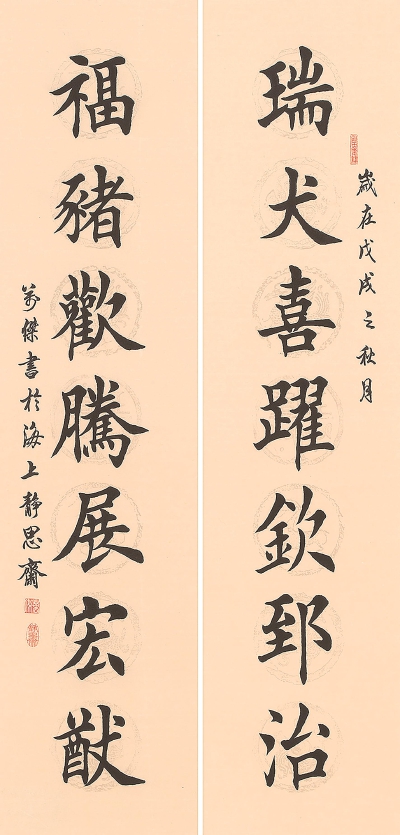 歲在戊戌之秋月
瑞犬喜躍欽郅治
福豬歡騰展宏猷
萬傑書於海上靜思齋